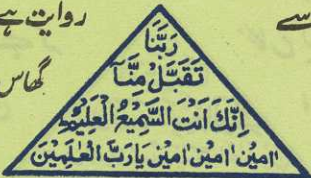 روایت ہے
سے
گھاس
رَبَّنَا
تَقَبَّلْ مِنَّا
اِنَّكَ اَنْتَ السَّمِيْعُ الْعَلِيْمُ
اٰمِيْنَ اٰمِيْنَ اٰمِيْنَ يَا رَبَّ الْعٰلَمِيْنَ